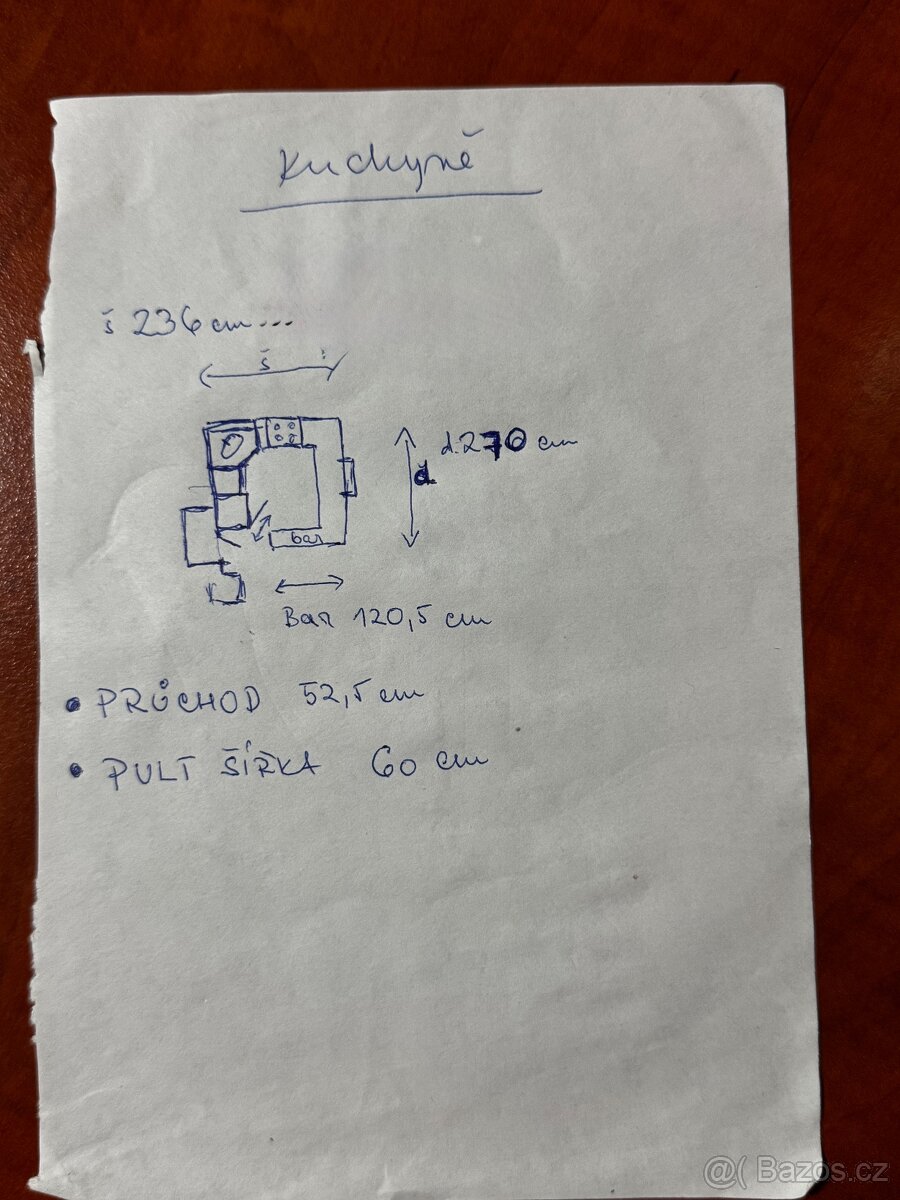 Kuchyně
š 236 cm...
š
d. 270 cm
d.
bar
Bar 120,5 cm
• PRŮCHOD 52,5 cm
• PULT ŠÍŘKA 60 cm
@( Bazos.cz